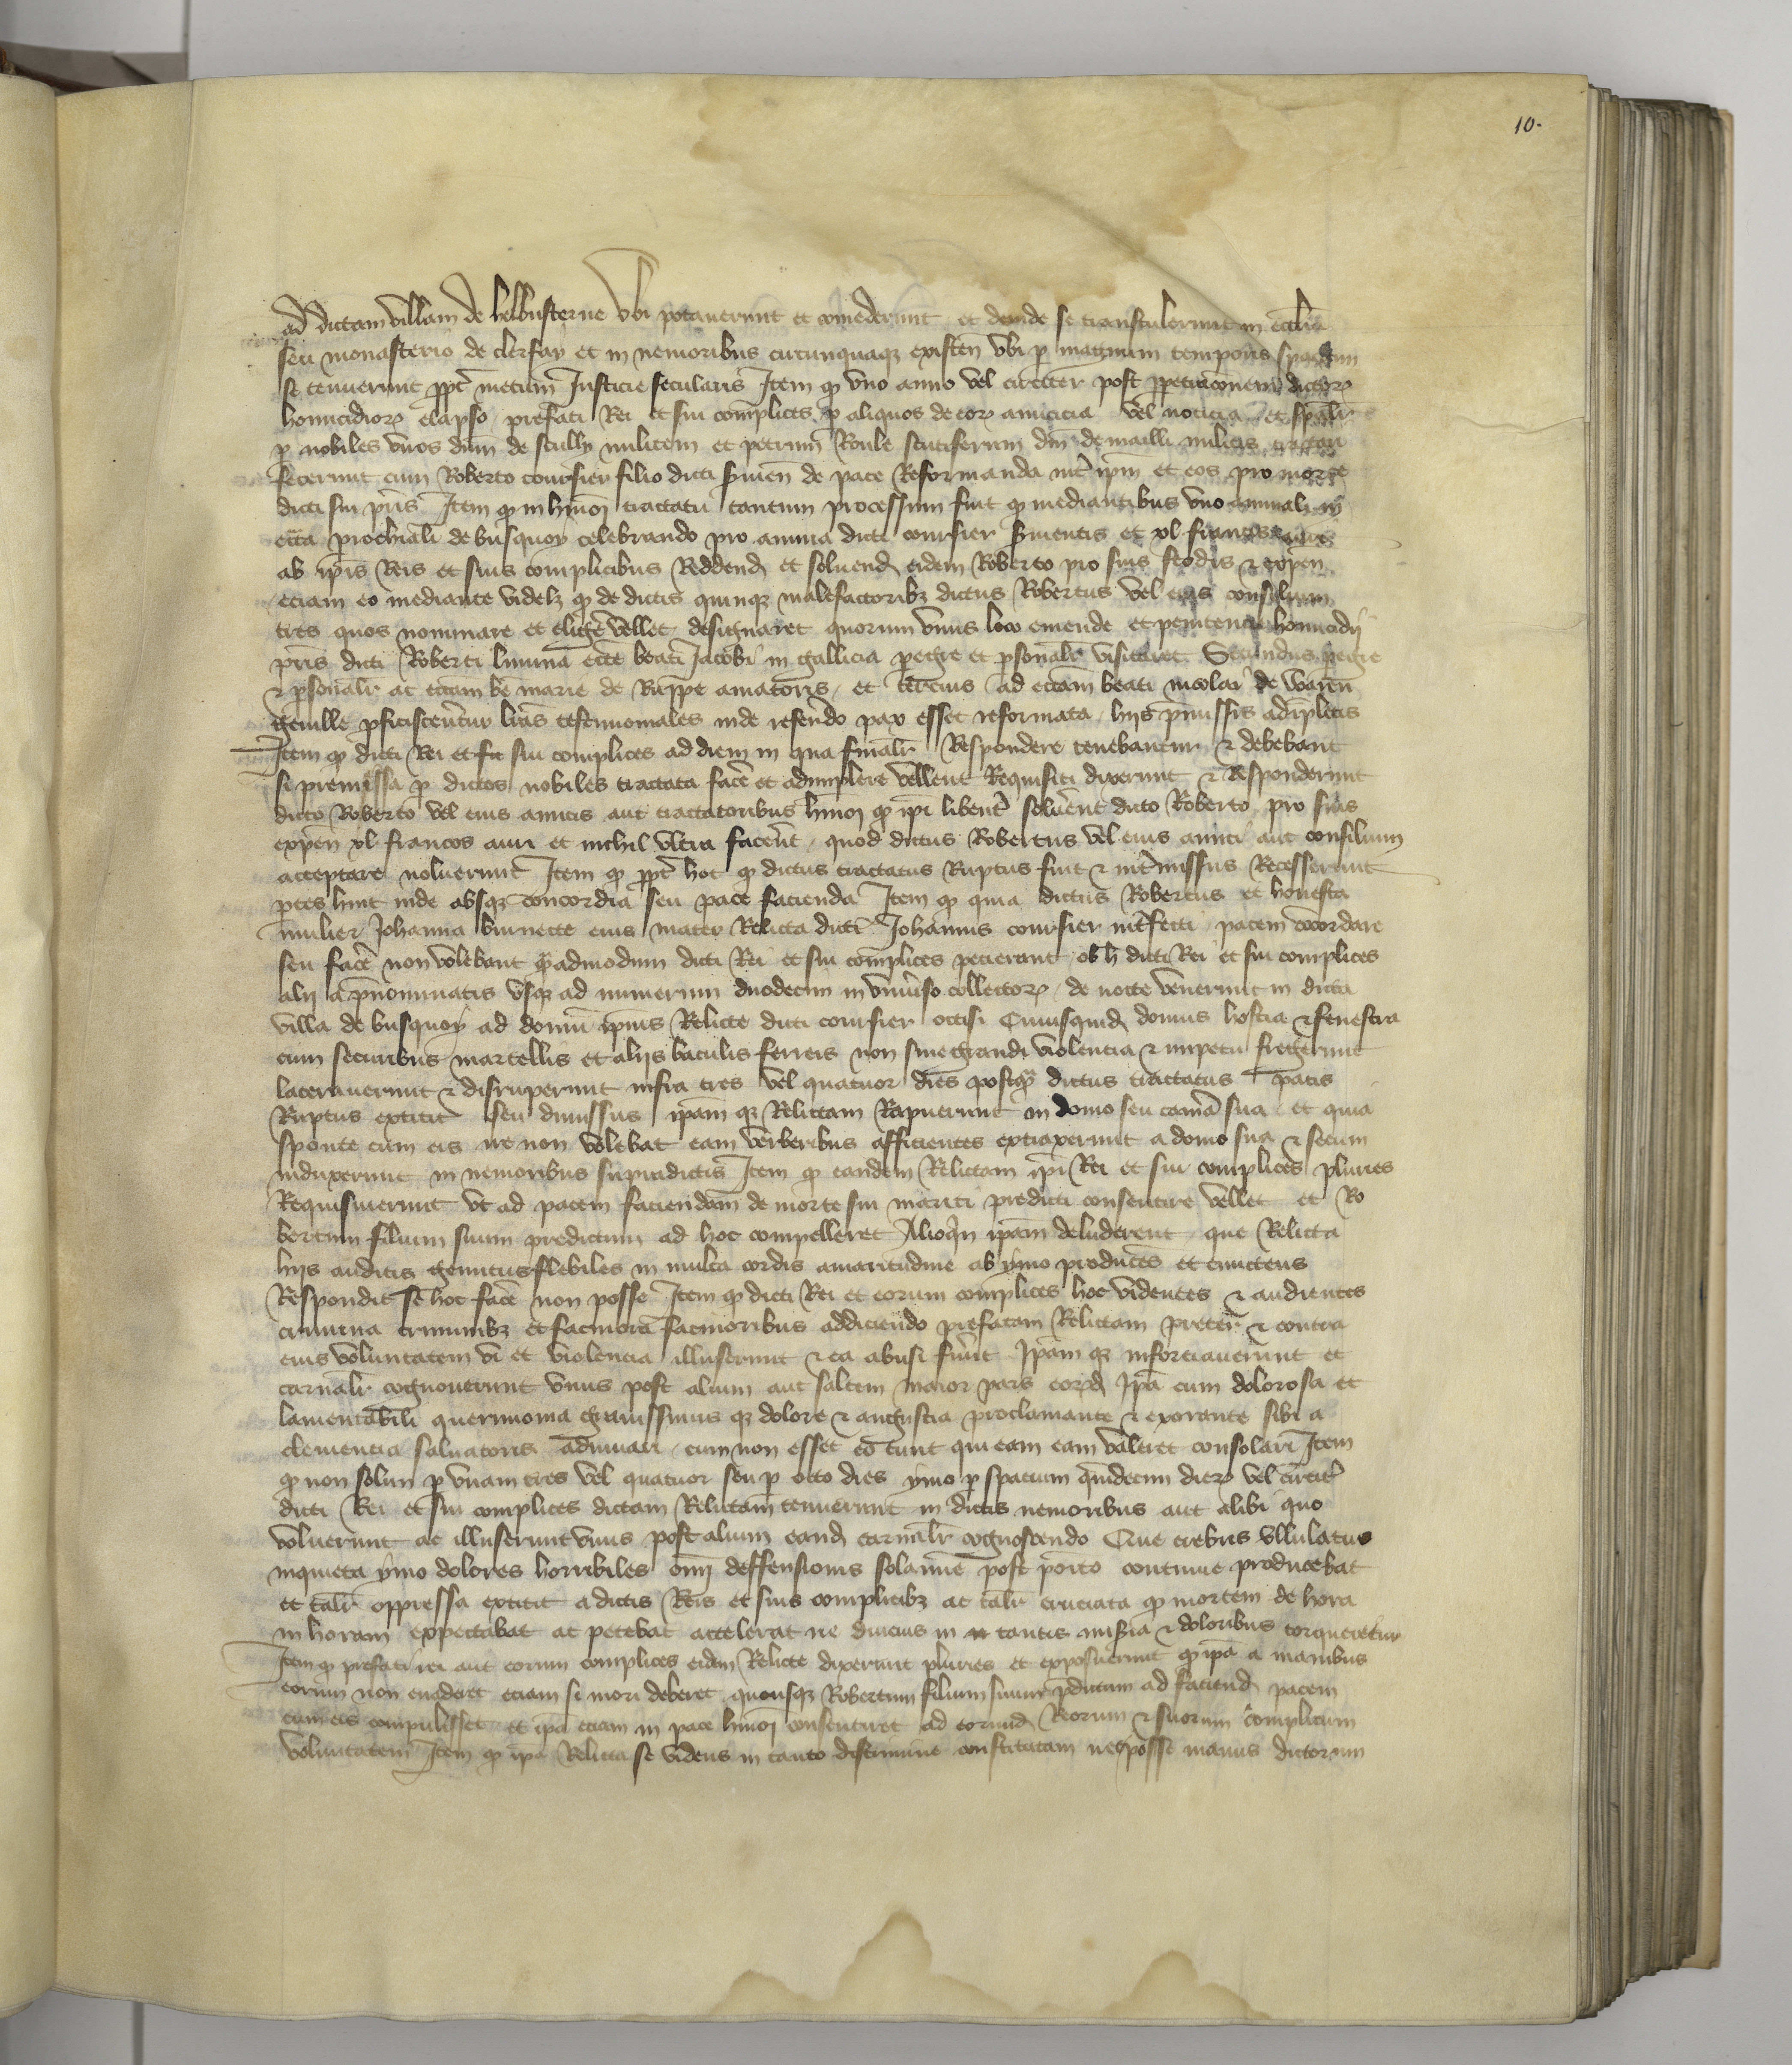 10.
ad dictam villam de helbusterne vbi potauerunt et comederunt et deinde se transtulerunt in ecclia
seu monasterio de clerfay et in nemoribus circunquaqz existen vbi p magnum temporis spacium
se tenuerunt ppt metum Justicie secularis Item qp vno anno vel circiter post ppetracionem dictorz
homicidiorz elapso prefati Rei et sui complices p aliquos de eorz amicicia vel noticia et spalr
p nobiles viros dnm de scully militem et petrum Roule scutiferum dni de mailli militis tractari
fecerunt cum Roberto coursier filio dicti de pace Reformanda int ipm et eos pro morte
dicti sui pris Item qp in hmoi tractatu tantum processum fuit qp mediantibus vno annuali in
eccia prochiali de busquoy celebrando pro anima dicti coursier et xl francis auri
ab ipis Reis et suis complicibus Reddend et soluend eidem Roberto pro suis feodis & expen
eciam eo mediante videlz qp de dictis quinqz malefactoribz dictus Robertus vel eius consilium
tres quos nominare et eligere vellet designaret quorum vnus loco emende et penitencie homicidij
pris dicti Roberti limina eccie beati Jacobi in gallicia pegre et psonalr visitaret Secundus pegre
& psonalr ac eciam be marie de Ruppe amatoris et tercius ad eciam beati nicolai de waren
geuille pficiscerentur lras testimoniales inde referendo pax esset reformata hijs pmissis adipletis
Item qp dicti Rei et sui complices ad diem in qua finalr Respondere tenebantur & debebant
si premissa p dictos nobiles tractata face et adimplere vellent Requisiti dixerunt & Responderunt
dicto Roberto vel eius amicis aut tractatoribus hmoi qp ipi libenter soluerent dicto Roberto pro suis
expen xl francos auri et nichil vltra facerent quod dictus Robertus vel eius amici aut consilium
acceptare noluerunt Item qp ppt hoc qp dictus tractatus Ruptus fuit & intmissus Recesserunt
ptes hinc inde absqz concordia seu pace facienda Item qp quia dictus Robertus et honesta
mulier Johanna brunette eius mater Relicta dicti Johannis coursier intfecti pacem concordare
seu face non volebant quadmodum dicti Rei et sui complices petierant ob h dicti Rei et sui complices
alij a pnominatis vsqz ad numerum duodecim in vniuso collectorz de nocte venerunt in dicta
villa de busquoy ad domu ipius Relicte dicti coursier occisi Cuiusquid domus hostia & fenestra
cum securibus martellis et alijs baculis ferreis non sine grandi violencia & impetu fregerunt
lacerauerunt & disruperunt infra tres vel quatuor dies postqz dictus tractatus pacis
Ruptus extitit seu dimissus ipam qz Relictam Rapuerunt in domo seu cama sua et quia
sponte cum eis ire non volebat eam verberibus afficientes extraxerunt a domo sua & secum
induxerunt in nemoribus supradictis Item qp eandem Relictam ipi Rei et sui complices pluries
Requisiuerunt vt ad pacem faciendam de morte sui mariti predicti consentire vellet et Ro
bertum filium suum predictum ad hoc compelleret Alioqn ipam deluderent que Relicta
hijs auditis gemitus flebiles in multa cordis amaritudine ab ymo producens et emittens
Respondit se hoc face non posse Item qp dicti Rei et eorum complices hoc videntes & audientes
crimina criminibz et facinora facinoribus addiciendo prefatam Relictam preter & contra
eius voluntatem vi et violencia illuserunt & ea abusi funt Ipam qz infortiauerunt et
carnalr cognouerunt vnus post alium aut saltem maior pars eorzd Ipa cum dolorosa et
lamentabili querimonia grauissimis qz dolore & angustia proclamante & exorante sibi a
clemencia saluatoris adiuuari cum non esset eo tunc qui eam eam valeret consolari Item
qp non solum p vnam tres vel quatuor seu p octo dies ymo p spacium quindecim dierz vel circit
dicti Rei et sui complices dictam Relictam tenuerunt in dictis nemoribus aut alibi quo
voluerunt ac illuserunt vnus post alium eand carnalr cognoscendo Que crebris vllulatus
inquieta ymo dolores horribiles omi deffensionis solamine post porto continue producebat
et talr oppressa extitit a dictis Reis et suis complicibz ac talr cruciata qp mortem de hora
in horam expectabat ac petebat accelerat ne diucius in tantis misia & doloribus torqueretur
Item qp prefati rei aut eorum complices eidem Relicte dixerunt pluries et exposuerunt qp ipa a manibus
eorum non euaderet eciam si mori deberet quousqz Robertum filium suum pdictum ad faciend pacem
cum eis compulisset et ipa eciam in pace hmoi consentiret ad eorumd Reorum & suorum complicum
voluntatem Item qp ipa Relicta se videns in tanto discrimine constitutam nec posse manus dictorum